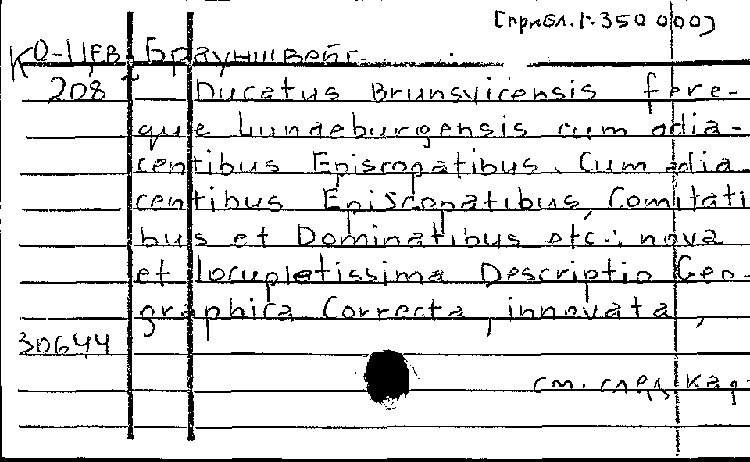 [прибл. 1:350 000]
Ко-Цев. Брауншвейг.
208 Ducatus Brunsvicensis fere-
que Lunaeburgensis cum adia-
centibus Episcopatibus. Cum adia
centibus Episcopatibus, Comitati
bus et Dominatibus etc.: nova
et locupletissima Descriptio Geo-
graphica Correcta, innovata,
30644
см. след. кар